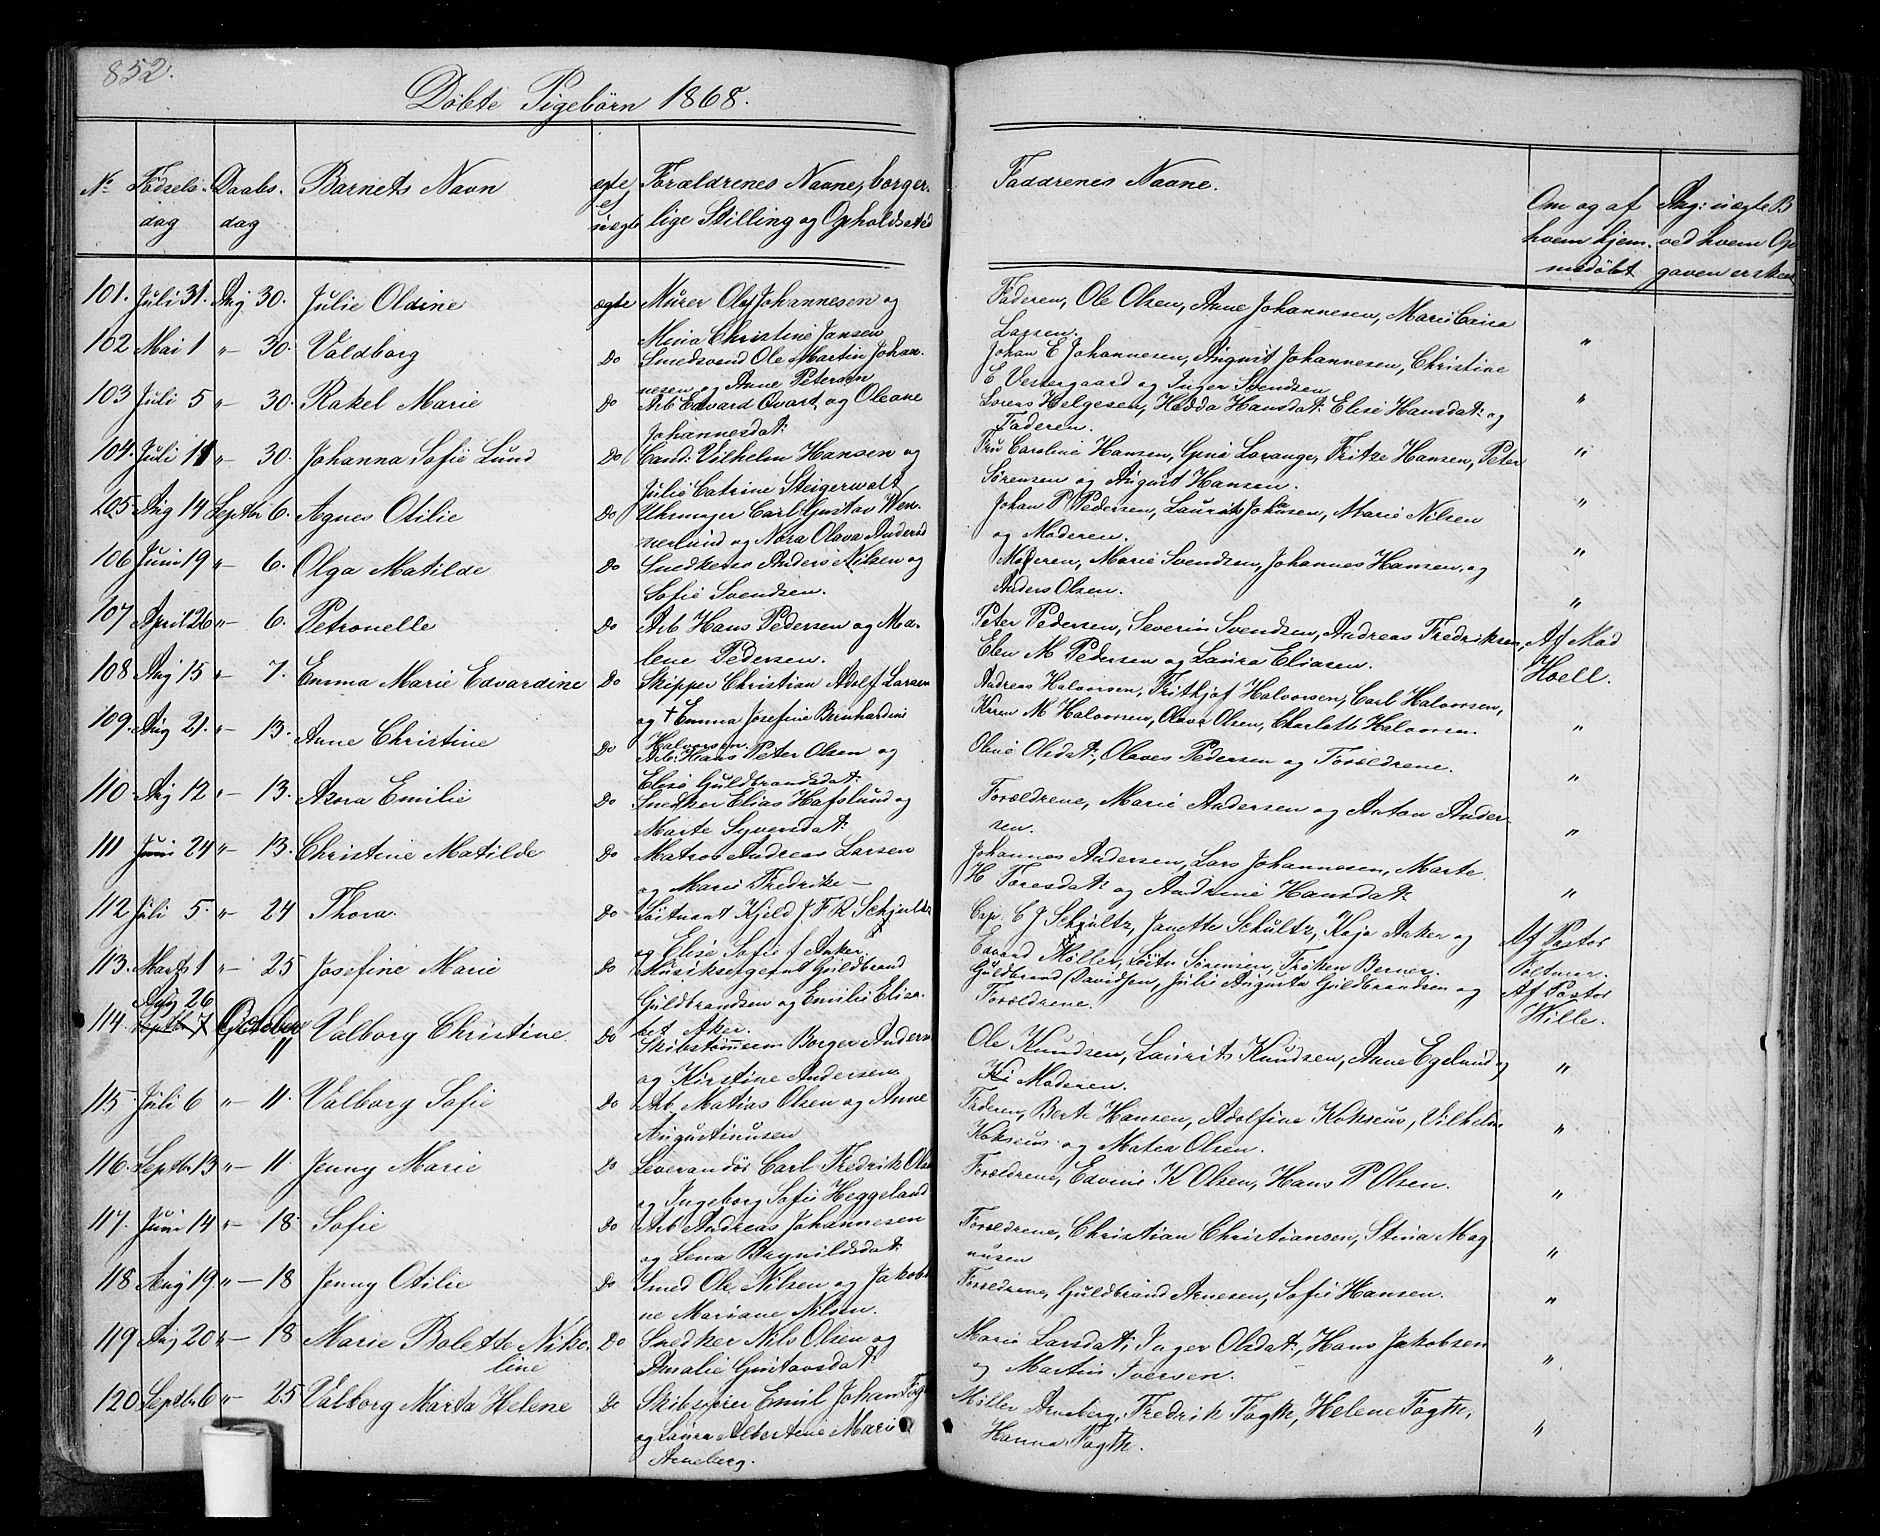 852.
Döbte Pigebörn 1868.
No Födsels- Daabs- Barnets Navn ægte Forældrenes Navne, borger- Faddrenes Navne. Om og af Ang: uægte B
dag dag el uægte lige Stilling og Opholdssted hvem hjem- ved hvem Op
medöbt gaven er skeet
101. Juli 31. Aug 30. Julie Oldine ægte Murer Ole Johannesen og Faderen, Ole Olsen, Anne Johannesen, Marie
Mina Christine Jansen Larsen. "
102 Mai 1 "- 30. Valdborg Do Smedsvend Ole Martin Johan- Johan E Johannesen, August Johannesen, Christine
nesen og Anne Petersen E. Vestergaard og Inger Svendsen "
103 Juli 5 "- 30. Rakel Marie Do Arb Edvard Qvart og Oleane Lorens Helgesen, Hedda Hansdat: Elise Hansdat: og
Johannesdat: Faderen.
104. Juli 11 "- 30. Johanna Sofie Lund Do Cand: Vilhelm Hansen og Fru Caroline Hansen, Gina Lorange, Fritze Hansen, Peter "
Julie Catrine Steigerwalt Sörensen og August Hansen.
205 Aug 14 Septbr 6. Agnes Otilie Do Uhrmager Carl Gustav Wen- Johan P Pedersen, Laurits Johansen, Marie Nilsen "
nerlund og Nora Olava Andersd og Moderen.
106 Juni 19 "- 6. Olga Matilde Do Snedkersv Anders Nilsen og Moderen, Marie Svendsen, Johannes Hansen, og "
Sofie Svendsen. Anders Olsen.
107 April 26 "- 6. Petronelle Do Arb Hans Pedersen og Ma- Peter Pedersen, Severin Svendsen, Andreas Fredriksen, "
lene Pedersen. Elen M Pedersen og Laura Eliasen.
108 Aug 15 "- 7. Emma Marie Edvardine Do Skipper Christian Adolf Larsen Andreas Halvorsen, Frithjof Halvorsen, Carl Halvorsen, Af Mad
og † Emma Josefine Bernhardine Karen M Halvorsen, Olava Olsen, Charlotte Halvorsen. Hoell.
Halvorsen.
109. Aug 21. "- 13. Anne Christine Do Arb: Hans Peter Olsen og Oline Olsdat:, Olaves Pedersen og Forældrene. "
Elise Guldbrandsdat:
110 Aug 12 "- 13. Anna Emilie Do Snedker Elias Hafslund og Forældrene, Marie Andersen og Anton Ander- "
Marte Syversdat: sen.
111 Juni 24 "- 13. Christine Matilde Do Matros Andreas Larsen Johannes Andersen, Lars Johannesen, Marte "
og Marie Fredrike - H Toresdat: og Andrine Hansdat:
112 Juli 5. "- 24 Thora Do Löitnant Kjeld J. F. R. Schjultz Cap. C J Schjultz, Janette Schultz, Kaja Anker og "
og Elise Sofie f Anker Edvard Möller, Löitn Sörensen, Fröken Berner. Af Pastor
113. Marts 1 "- 25 Josefine Marie Do Musiksergeant Guldbrand Guldbrand Davidsen, Julie Augusta Guldbrandsen og
Guldbrandsen og Emilie Elisa- Forældrene. Af Pastor
bet Aker. Wille.
114. Aug 26 Septbr 7 October 11 Valborg Christine. Do Skibstömmerm Borger Anders Ole Knudsen, Laurits Knudsen, Anne Egelund og "
og Kirstine Andersen Moderen.
115. Juli 6 "- 11. Valborg Sofie Do Arb. Matias Olsen og Anne Faderen, Berte Hansen, Adolfine Kokseus, Vilhelm "
Augustinusen Kokseus og Matea Olsen.
116. Septbr 13 "- 11. Jenny Marie Do Leverandör Carl Fredrik Olse Forældrene, Edvine K Olsen, Hans P Olsen. "
og Ingeborg Sofie Heggeland
117. Juni 14 "- 18. Sofie Do Arb Andreas Johannesen Forældrene, Christian Christiansen, Stina Mag "
og Lena Bagnildsdat: nusen
118 Aug 19. "- 18 Jenny Otilie Do Smed Ole Nilsen og Jakobi Forældrene, Guldbrand Arnesen, Sofie Hansen. "
ne Mariane Nilsen.
119 Aug 20 "- 18 Marie Bolette Niko- Do Snedker Nils Olsen og Marie Larsdat:, Inger Olsdat:, Hans Jakobsen "
line Amalie Gustavsdat: og Martin Iversen.
120 Septbr 6 "- 25 Valborg Marta Helene Do Skibsförer Emil Johan Fogt Möller Arneberg, Fredrik Fogth, Helene Fogth, "
og Laura Albertine Marie Hanna Fogth.
Arneberg.